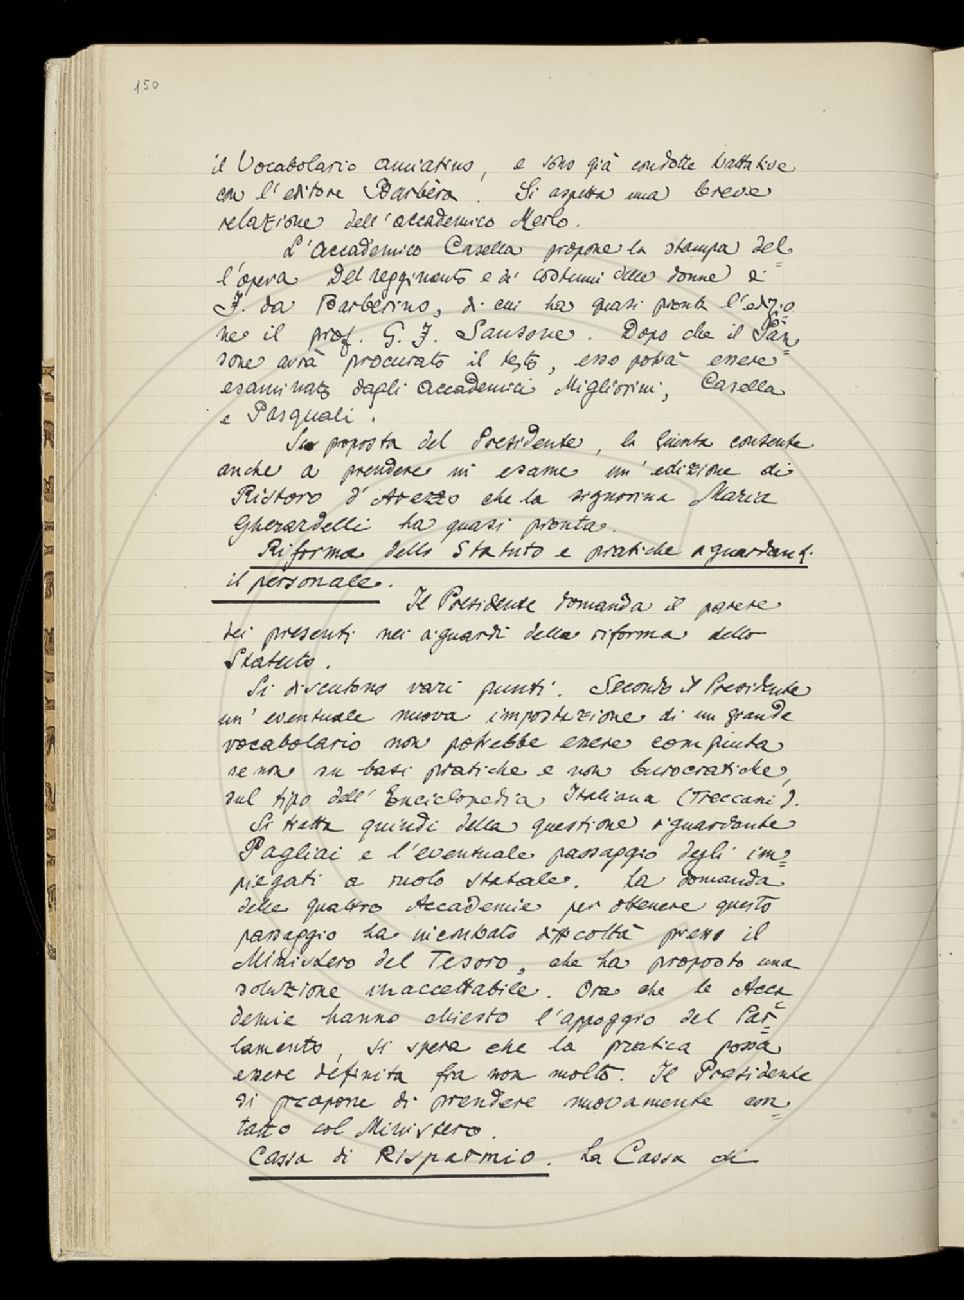 150
il Vocabolario amiatino, e sono già condotte trattative
con l'editore Barbèra. Si aspetta una breve
relazione dell'accademico Merlo.
L'Accademico Casella propone la stampa del-
l'opera Del reggimento e de' costumi delle donne di
F. da Barberino, di cui ha quasi pronta l'edizio-
ne il prof. G. F. Sansone. Dopo che il San-
sone avrà procurato il testo, esso potrà essere
esaminato dagli Accademici Migliorini, Casella
e Pasquali.
Su proposta del Presidente, la Giunta consente
anche a prendere in esame un'edizione di
Ristoro d'Arezzo che la signorina Maria
Gherardelli ha quasi pronta.
Riforma dello Statuto e pratiche riguardanti
il personale. Il Presidente domanda il parere
dei presenti nei riguardi della riforma dello
Statuto.
Si discutono vari punti. Secondo il Presidente
un'eventuale nuova impostazione di un grande
vocabolario non potrebbe essere compiuta
se non su basi pratiche e non burocratiche,
sul tipo dell'Enciclopedia Italiana (Treccani).
Si tratta quindi della questione riguardante
Pagliai e l'eventuale passaggio degli im-
piegati a ruolo statale. La domanda
delle quattro Accademie per ottenere questo
passaggio ha incontrato difficoltà presso il
Ministero del Tesoro, che ha proposto una
soluzione inaccettabile. Ora che le Acca-
demie hanno chiesto l'appoggio del Par-
lamento, si spera che la pratica possa
essere definita fra non molto. Il Presidente
si propone di prendere nuovamente con-
tatto col Ministero.
Cassa di Risparmio. La Cassa di